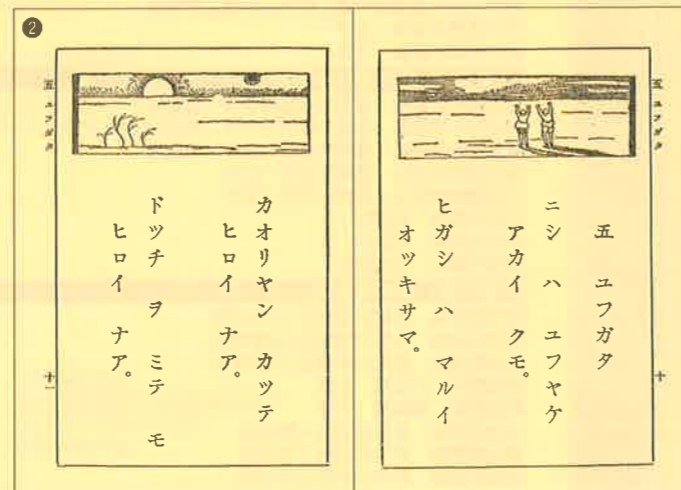 ❷
五 ユフガタ
十
五 ユフガタ
ニシ ハ ユフヤケ
アカイ クモ。
ヒガシ ハ マルイ
オツキサマ。
五 ユフガタ
十一
カオリヤン カツテ
ヒロイ ナア。
ドツチ ヲ ミテ モ
ヒロイ ナア。